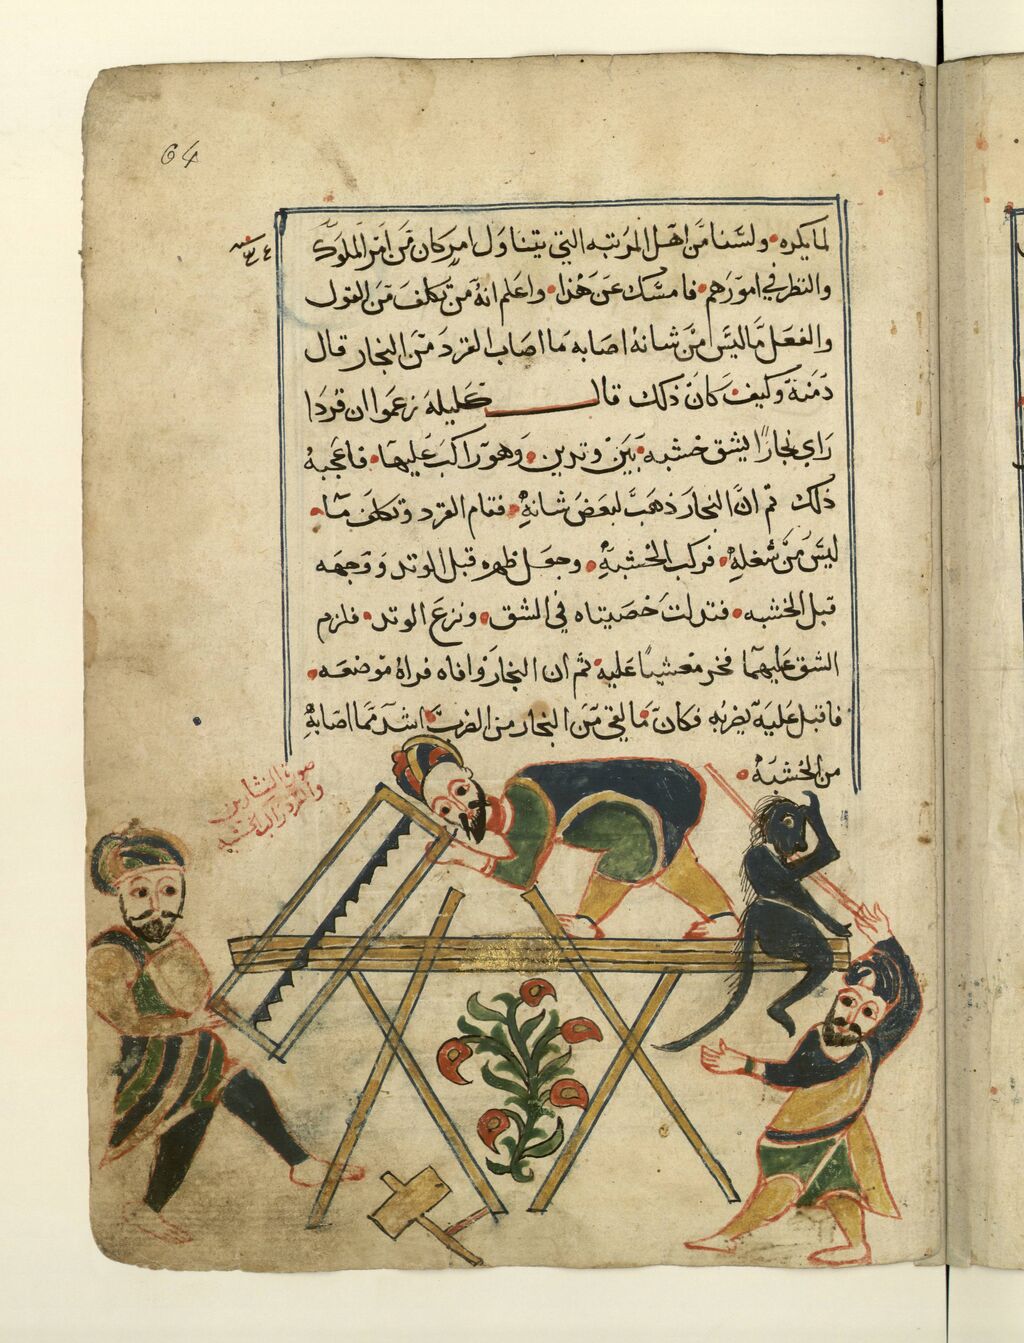 64
لما يكره ولسنا من اهل المرتبه التي يتناول امر كان من امر الملوك
والنظر في امورهم فامسك عن هذا واعلم انه من تكلف من القول
والفعل ما ليس من شانه اصابه ما اصاب القرد من النجار قال
دمنة وكيف كان ذلك قال كليله زعموا ان قردا
راي نجارا يشق خشبه بين وتدين وهو راكب عليها فاعجبه
ذلك ثم ان النجار ذهب لبعض شانه فقام القرد وتكلف ما
ليس من شغله فركب الخشبة وجعل ظهره قبل الوتد ووجهه
قبل الخشبه فتدلت خصيتاه في الشق ونزع الوتد فلزم
الشق عليهما فخر مغشيا عليه ثم ان النجار وافاه فراه موضعه
فاقبل عليه يضربه فكان ما لقي من النجار من الضرب اشد مما اصابه
من الخشبه
صورة النشارين
والقرد راكب الخشبه